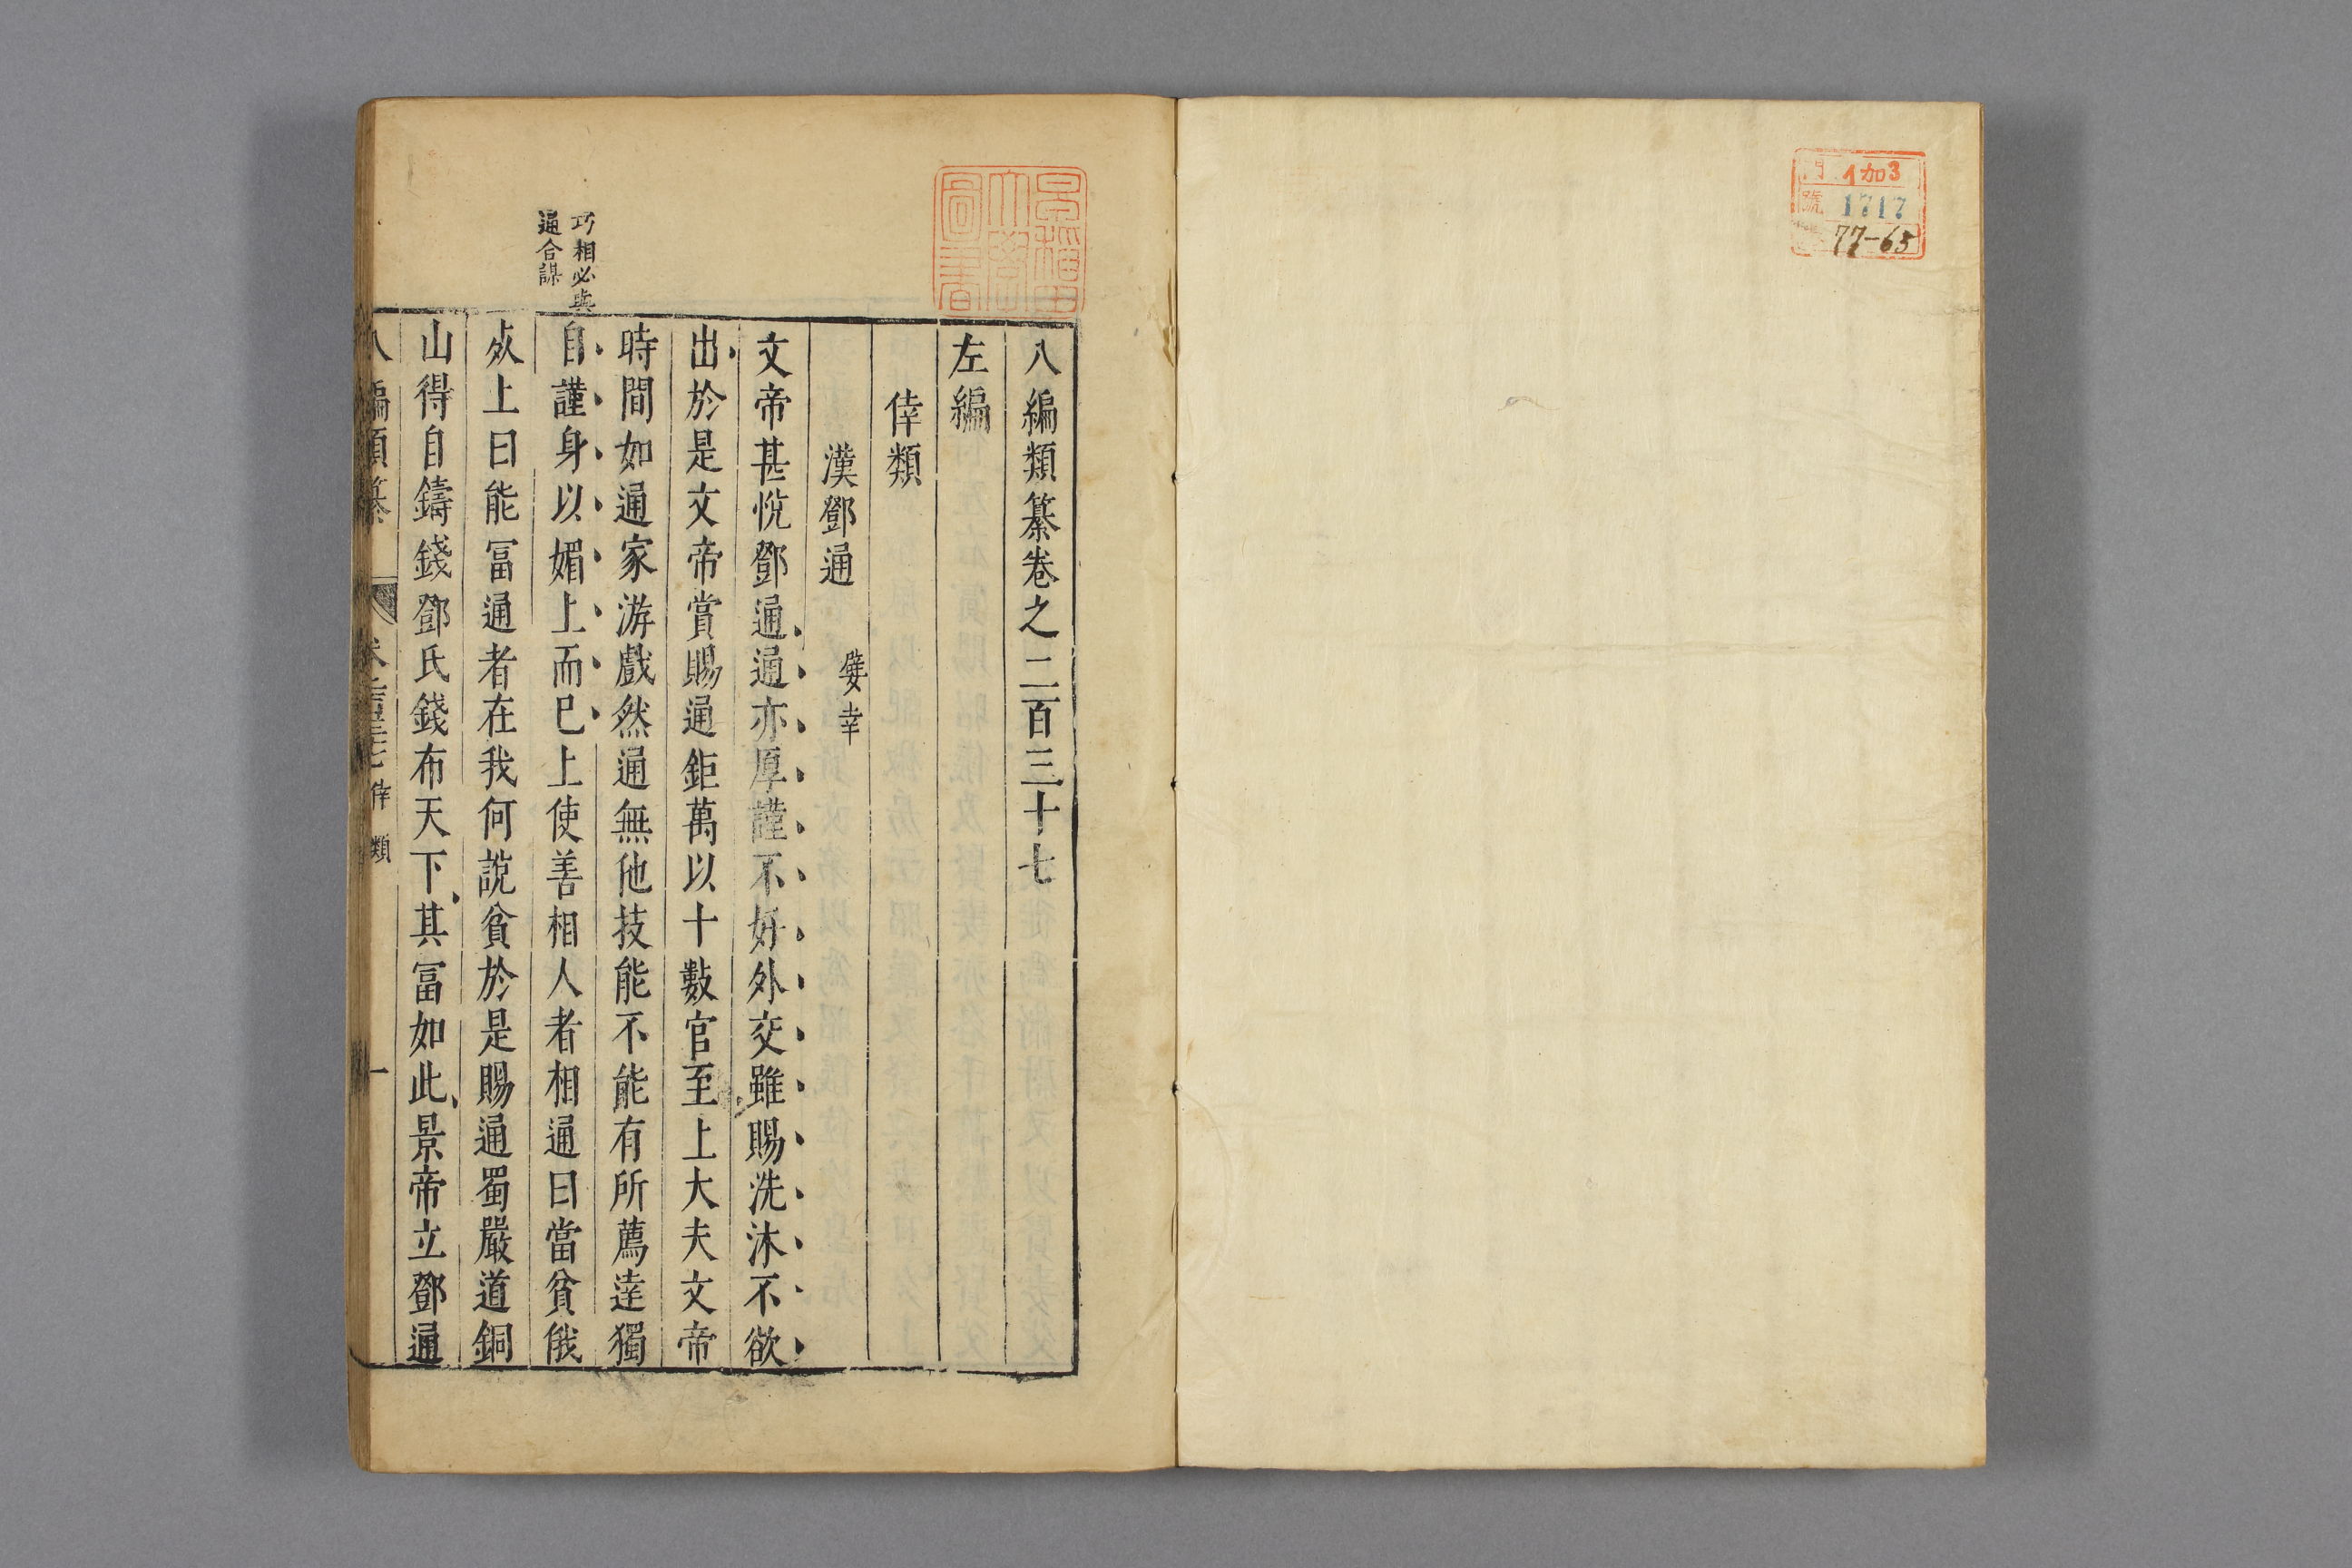 加3
號 1717
77-65
早稲田大學圖書
八編類纂卷之二百三十七
左編
倖類
漢鄧通 嬖幸
文帝甚悅鄧通通亦厚謹不好外交雖賜洗沐不欲
出於是文帝賞賜通鉅萬以十數官至上大夫文帝
時間如通家游戲然通無他技能不能有所薦達獨
巧相必與
通合謀
自謹身以媚上而已上使善相人者相通曰當貧俄
死上曰能冨通者在我何說貧於是賜通蜀嚴道銅
山得自鑄錢鄧氏錢布天下其冨如此景帝立鄧通
八編類纂 倖類 一